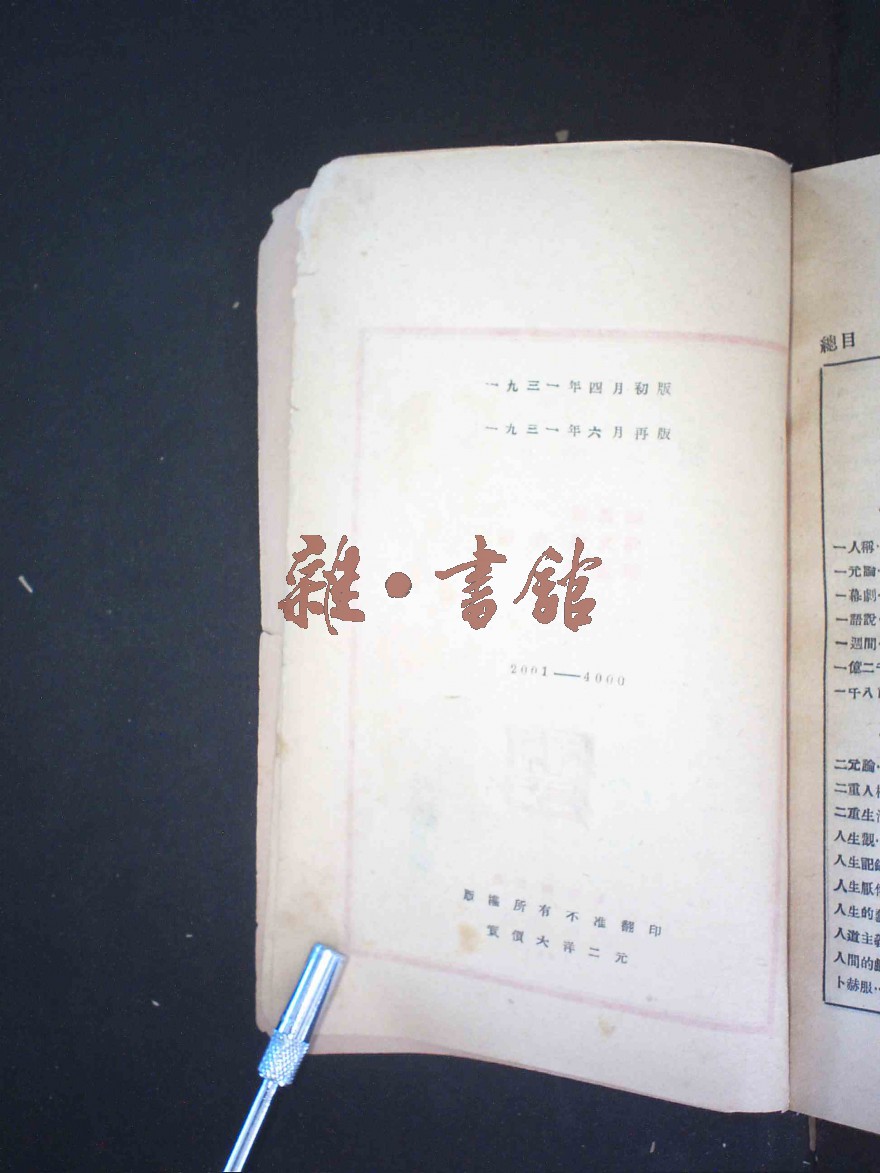 一九三一年四月初版
一九三一年六月再版
雜·書館
2001——4000
版權所有不准翻印
實價大洋二元
總目
一人稱·
一元論·
一幕劇·
一語說·
一週間·
一億二千
一千八百
二元論·
二重人格
二重生活
人生觀·
人生記錄
人生厭倦
人生的藝
人道主義
人間的
卜赫服·